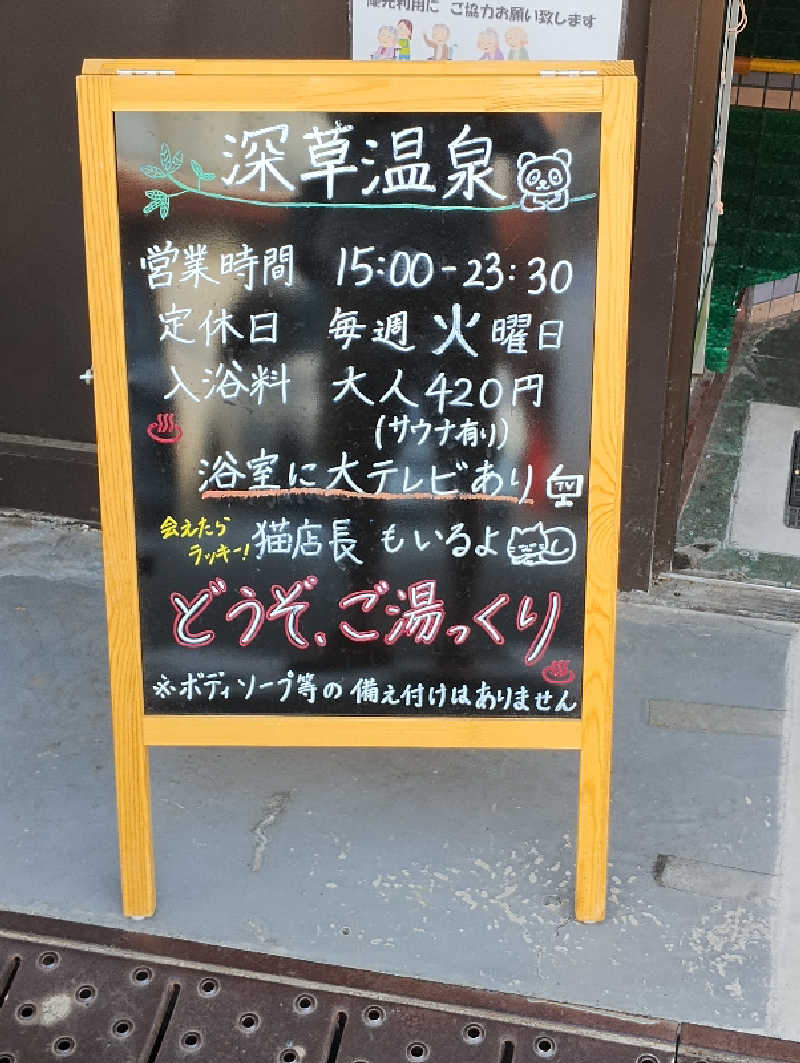 優先利用に ご協力お願い致します
深草温泉
営業時間 15:00-23:30
定休日 毎週火曜日
入浴料 大人420円
(サウナ有り)
浴室に大テレビあり
TV
会えたら
ラッキー!
猫店長もいるよ
どうぞ、ご湯っくり
※ボディソープ等の備え付けはありません